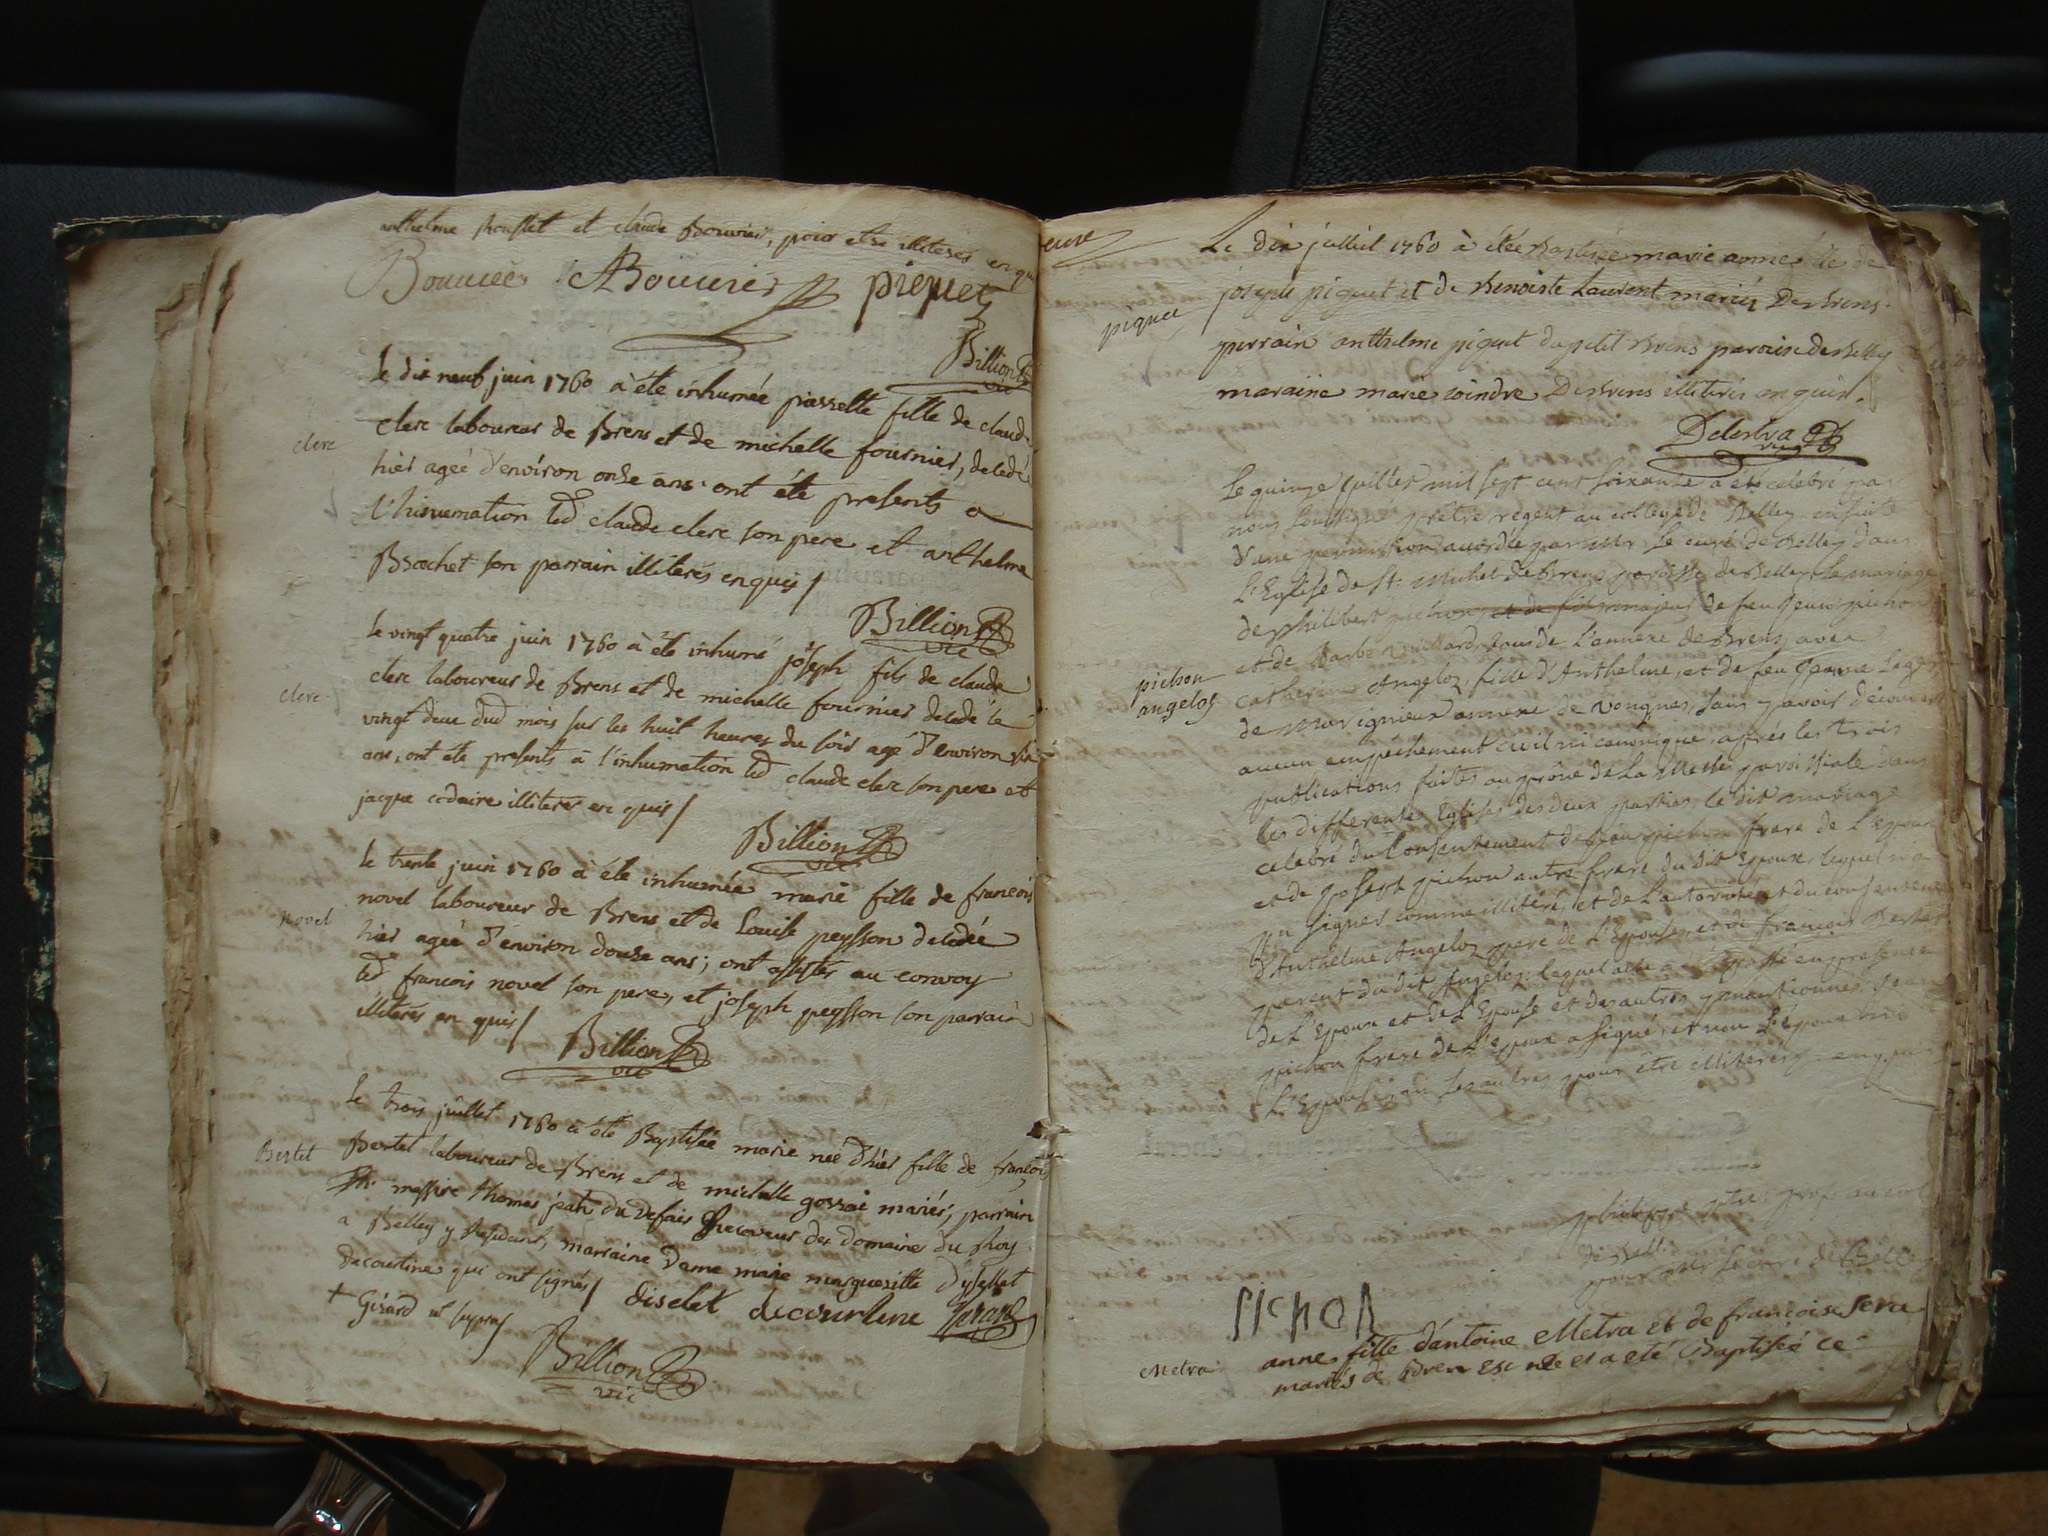 anthelme Roustet et claude Bouvier, pour etre illiterés enquis
Bouuier ABouuier piquet
Billion
vic
le dix neuf juin 1760 à été inhumée pierrette fille de claude
clerc
clerc laboureur de Brens et de michelle fournier, decedée
hier ageé d'environ onze ans. ont été presents a
l'hinumation led claude clerc son pere et anthelme
Brochet son parrain illiterés enquis/
Billion
vic
le vingt quatre juin 1760 à été inhumé joseph fils de claude
clerc
clerc laboureur de Brens et de michelle fournier decedé le
vingt deux dud mois sur les huit heures du soir agé d'environ
ans, ont été presents à l'inhumation led claude clerc son pere et
jacque codaire illiterés en quis/
Billion
vic
le trente juin 1760 à été inhumée marie fille de francois
novel
novel laboureur de Brens et de Louise peysson decedée
hier ageé d'environ douze ans; ont assistés au convoy
led francois novel son pere, et joseph peysson son parrain
illiterés en quis/
Billion
vic
le trois juillet 1760 à été Baptisée marie neé d'hier fille de francois
Bertet
Bertet laboureur de Brens et de michelle gorraé mariés, parrain
messire thomas jean du defais Receveur des domaines du Roy
a Belley y Residant, marraine dame marie marguerite d'ysellet
decourtine qui ont signés/ diselet decourtine
+ Girard et
Billion
vic
cure
Le dix juillet 1760 à étée Baptisée marie anne fille de
piquet
joseph piquet et de Benoiste Laurent mariés De Brens.
parrain anthelme piquet du petit Brens paroisse de Belley
maraine marie coindre De Brens illiterés enquis.
Delestra
vic
Le quinze juillet mil sept cent soixante a été célébré par
nous soussigné prêtre régent au college de Belley ensuite
d'une permission accordée par Mr Le curé de Belley dans
L'Eglise de St Michel de Brens paroisse de Belley Le mariage
de philibert pichon et de fils majeur de feu jean pichon
et de Barbe Vuillard tous de L'annexe de Brens, avec
pichon
angeloz
catherine Angeloz, fille d'Anthelme, et de feu Jeanne Leger
de marignieux annexe de Vongnes, sans y avoir découvert
aucun empêchement civil ni canonique, après les trois
publications faites au prône de La Messe paroissiale dans
les differentes Eglises des deux parties, le dit mariage
celebré du Consentement de jean pichon frere de L'epoux
et de joseph pichon autre frere du dit Epoux, lequel n'a
pu signer comme illiteré, et de L'autorité et du consentement
d'Anthelme Angeloz pere de L'Epouse, et de françois Bertet
parent du dit Angeloz, lequel acte a été passé en presence
de L'Epoux et de L'Epouse et des autres y mentionnés. jean
pichon frere de L'epoux a signé, et non L'epoux ni
L'Epouse, ni les autres pour être illiterés, enquis
prof. au col
de Belley
pour Mr Le curé de Belley
PICHON
anne fille d'antoine Metra et de francoise Sera
Metra
mariés de Bren est née et a eté Baptisée ce